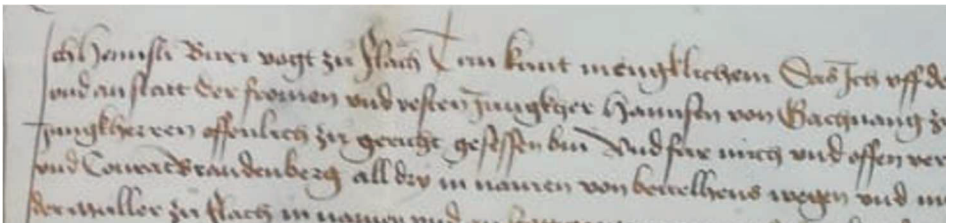 Ich Hannsli Burr vogt zu Flach Tun kunt mengklichem Das Ich uff de
und an statt der fromen und vesten Jungkher Hannsen von Gachnang z
Jungkherren offenlich zu gericht gesessen bin Und fur mich und offen ver
und Conrat Brandenberg all dry in namen von bevelhens wegen und in
der muller zu Flach in namen und